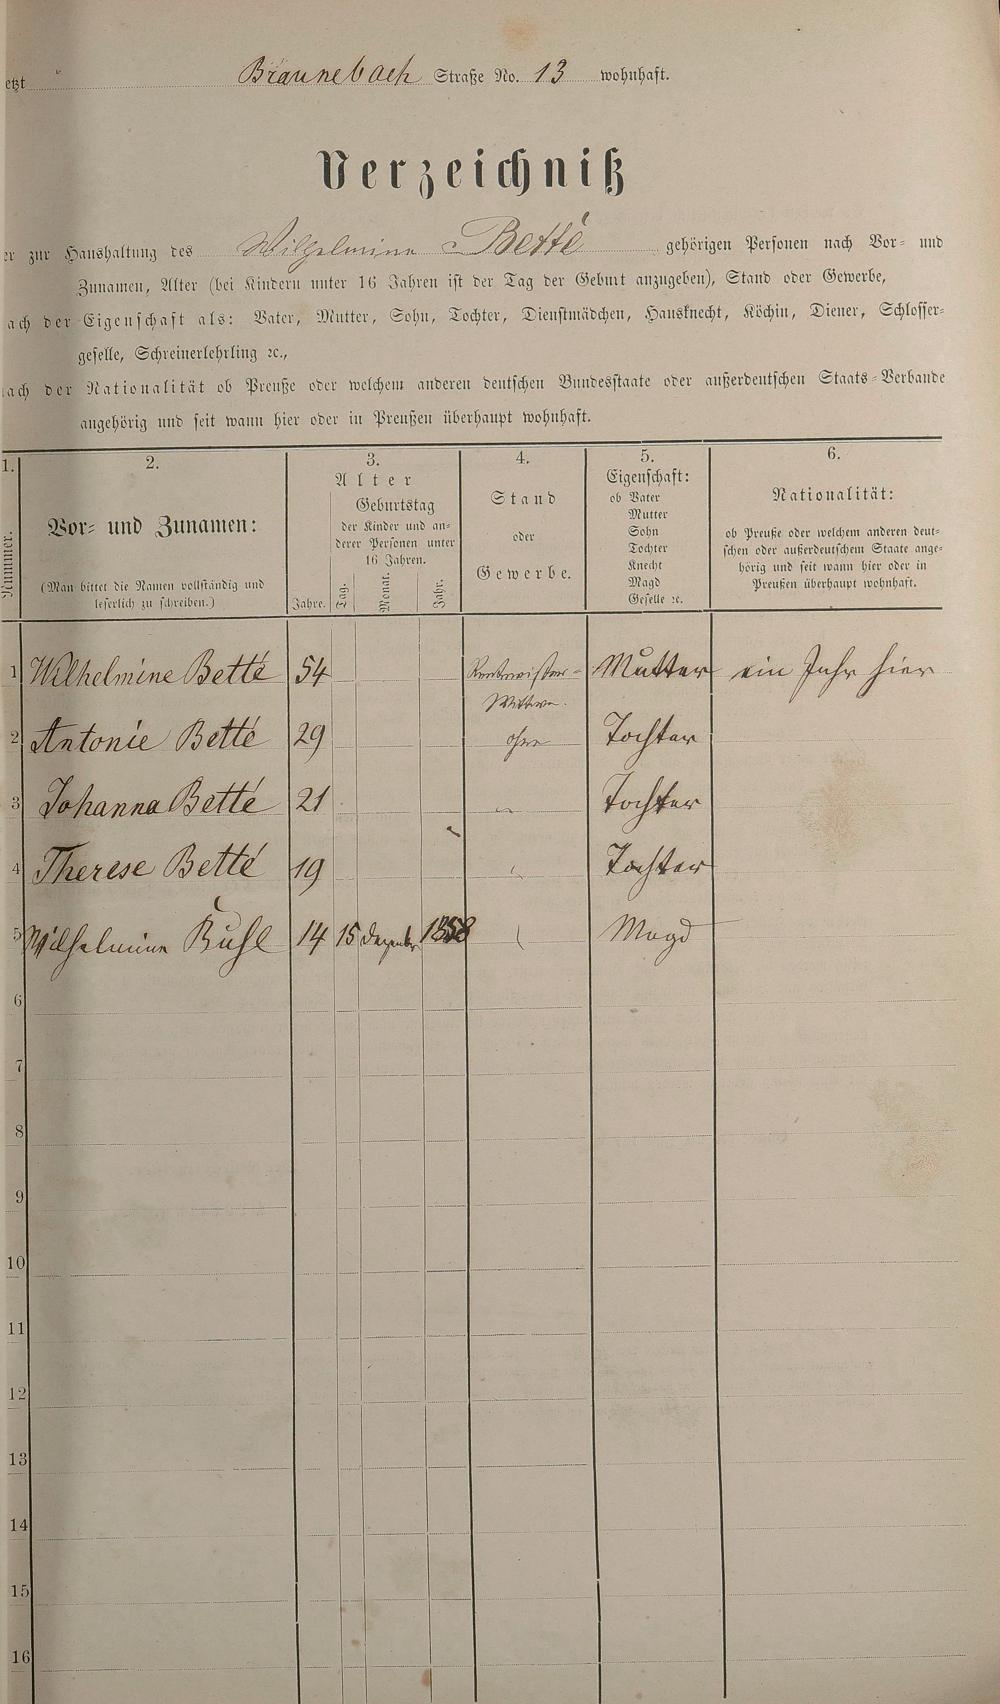 etzt Braunebach Straße No. 13 wohnhaft.
Verzeichniß
er zur Haushaltung des Wilhelmine Betté gehörigen Personen nach Vor- und
Zunamen, Alter (bei Kindern unter 16 Jahren ist der Tag der Geburt anzugeben), Stand oder Gewerbe,
ach der Eigenschaft als: Vater, Mutter, Sohn, Tochter, Dienstmädchen, Hausknecht, Köchin, Diener, Schlosser-
geselle, Schreinerlehrling ꝛc.,
nach der Nationalität ob Preuße oder welchem anderen deutschen Bundesstaate oder außerdeutschen Staats-Verbande
angehörig und seit wann hier oder in Preußen überhaupt wohnhaft.
1.
Nummer.
2.
Vor- und Zunamen:
(Man bittet die Namen vollständig und
leserlich zu schreiben.)
3.
Alter
Geburtstag
der Kinder und an-
derer Personen unter
16 Jahren.
Jahre. Tag. Monat. Jahr.
4.
Stand
oder
Gewerbe.
5.
Eigenschaft:
ob Vater
Mutter
Sohn
Tochter
Knecht
Magd
Geselle ꝛc.
6.
Nationalität:
ob Preuße oder welchem anderen deut-
schen oder außerdeutschem Staate ange-
hörig und seit wann hier oder in
Preußen überhaupt wohnhaft.
1 Wilhelmine Betté 54 Rentmeister- Mutter ein Jahr hier
Wittwe.
2 Antonie Betté 29 ohne Tochter
3 Johanna Betté 21 " Tochter
4 Therese Betté 19 " Tochter
5 Wilhelmine Buhl 14 15 Dezember 1858 " Magd
6
7
8
9
10
11
12
13
14
15
16